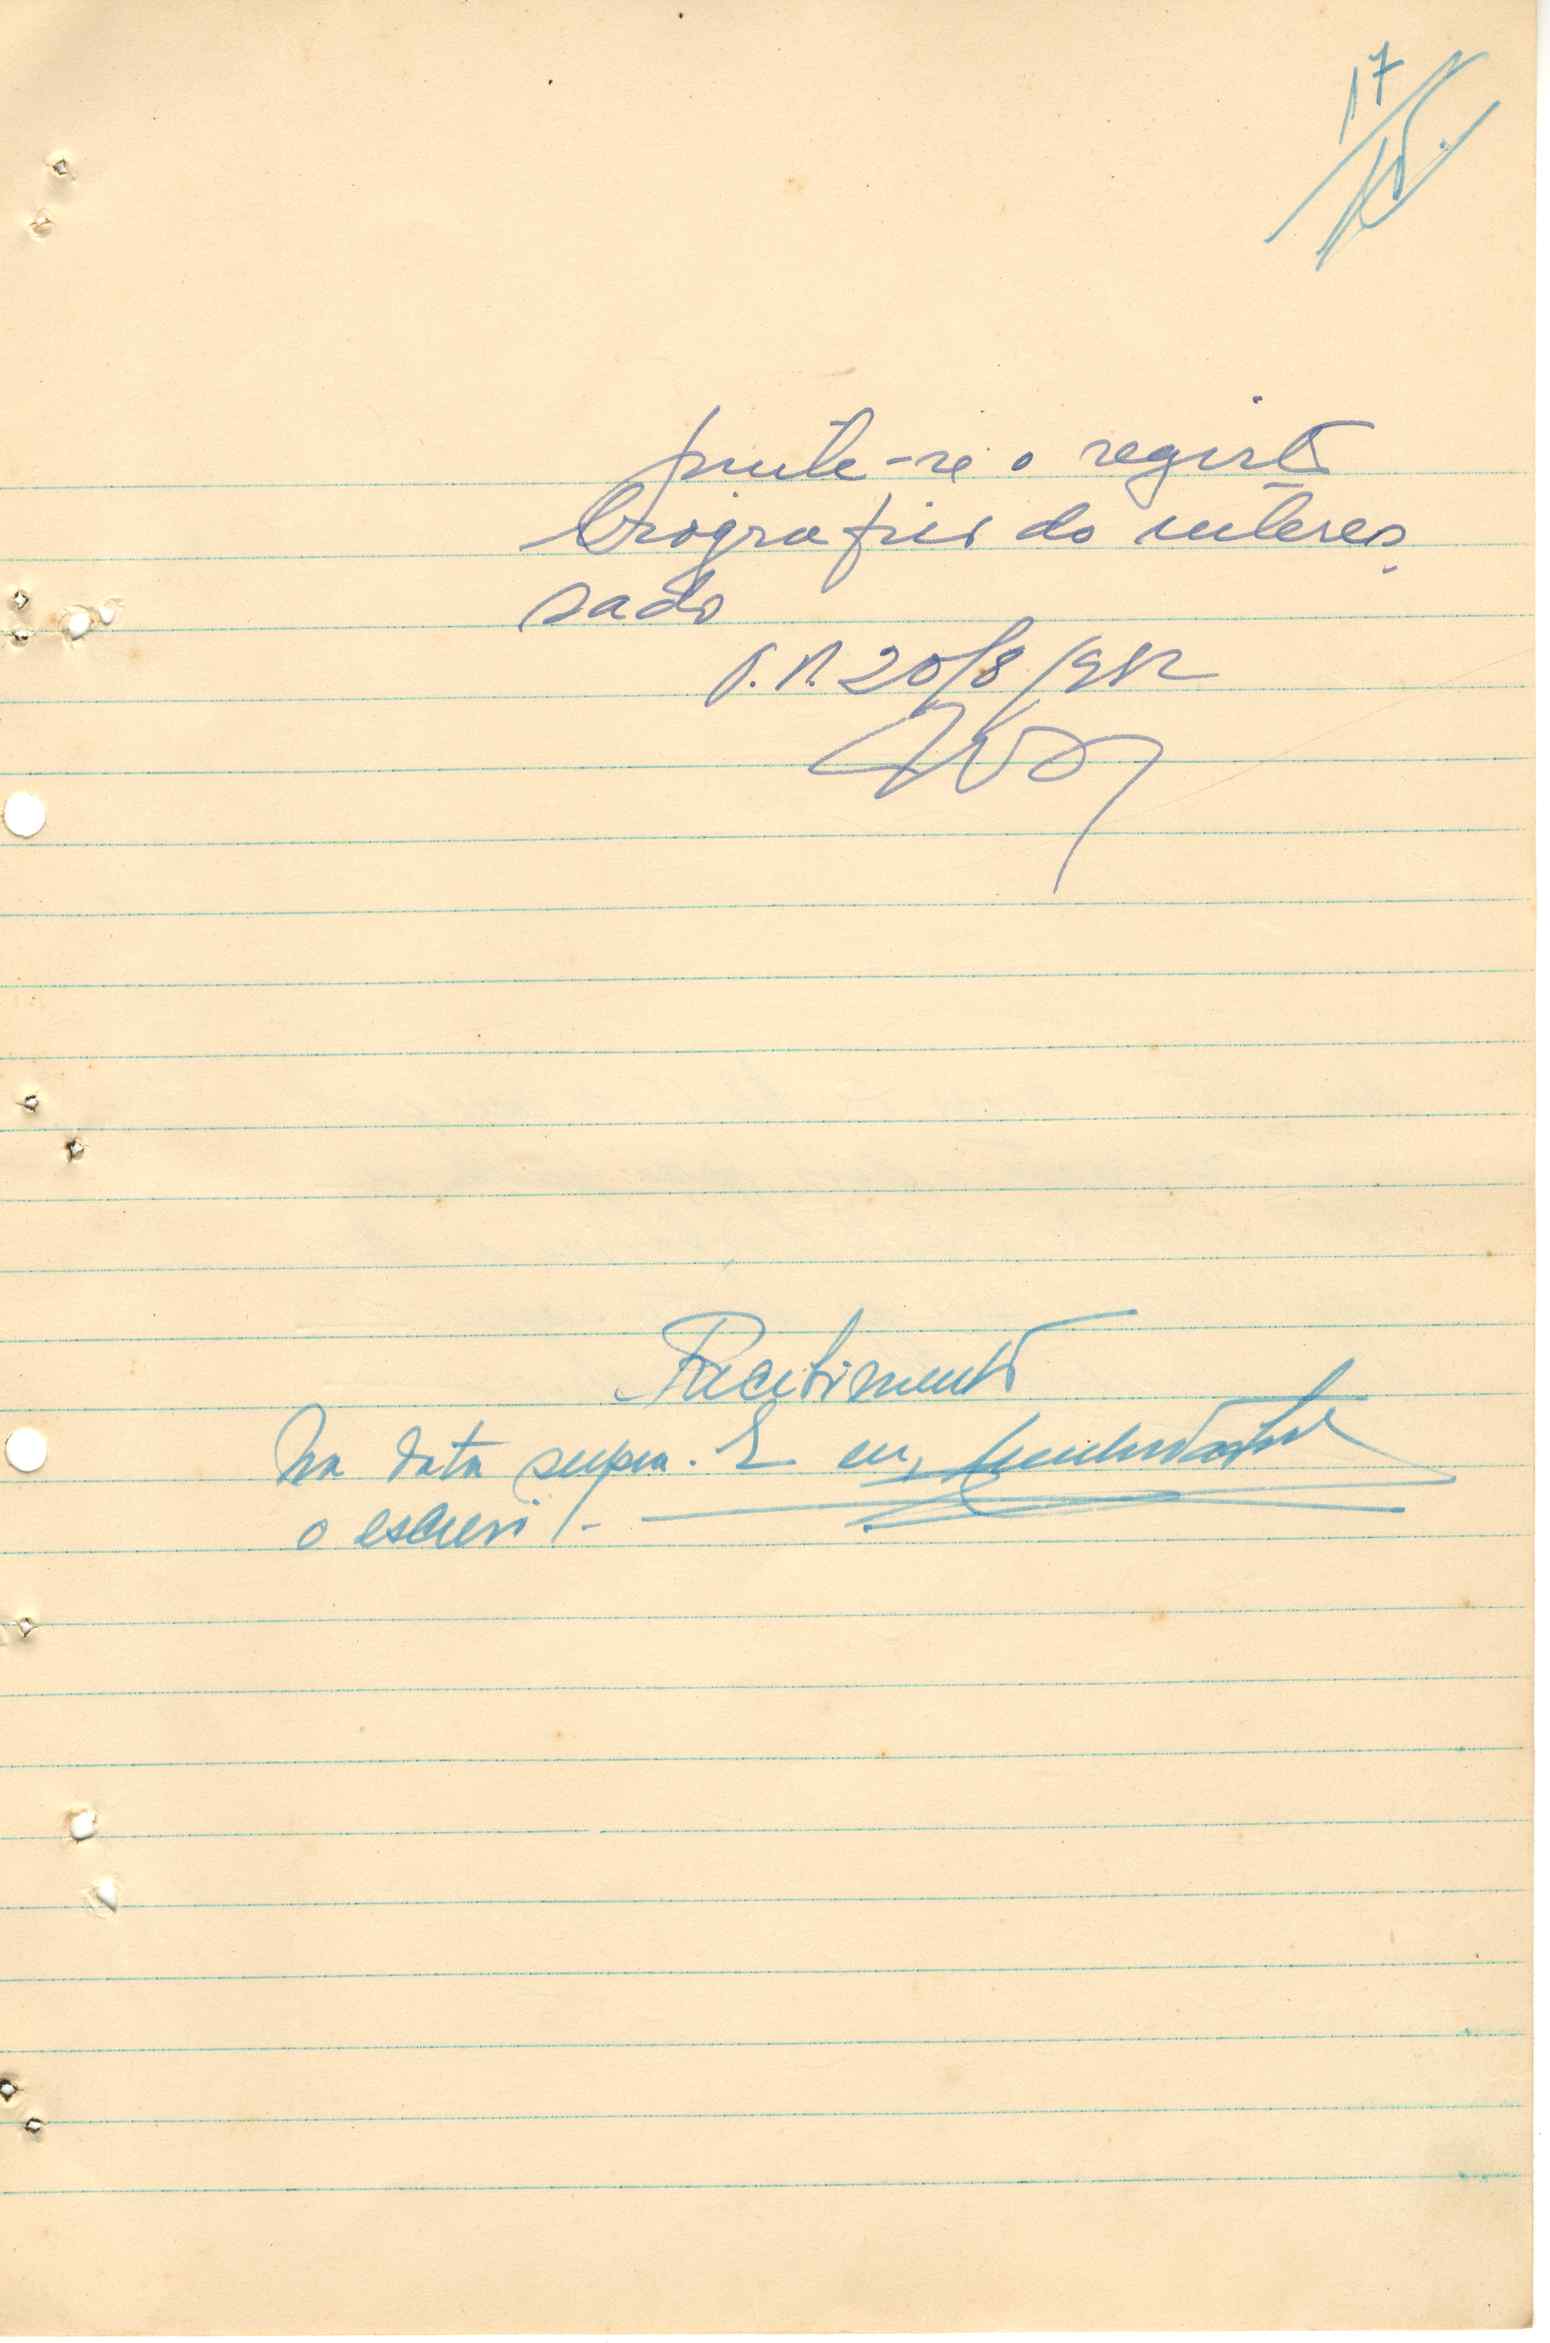 17
Junte-se o registo
biografico do interes
sado
20/8/952
Recebimento
Na data supra. E eu,
o escrevi/-